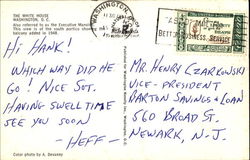 THE WHITE HOUSE
WASHINGTON, D.C.
Also referred to as the Executive Mansion
This view is of the south portico showing
balcony added in 1948.
Hi Hank!
Which way did he
go! Nice Sot.
Having swell time
See you soon
-Heff-
Color photo by A. Devaney
WASHINGTON, D.C.
Mr. Henry Czarkowski
Vice-President
Barton Savings & Loan
560 Broad St.
Newark, N.J.